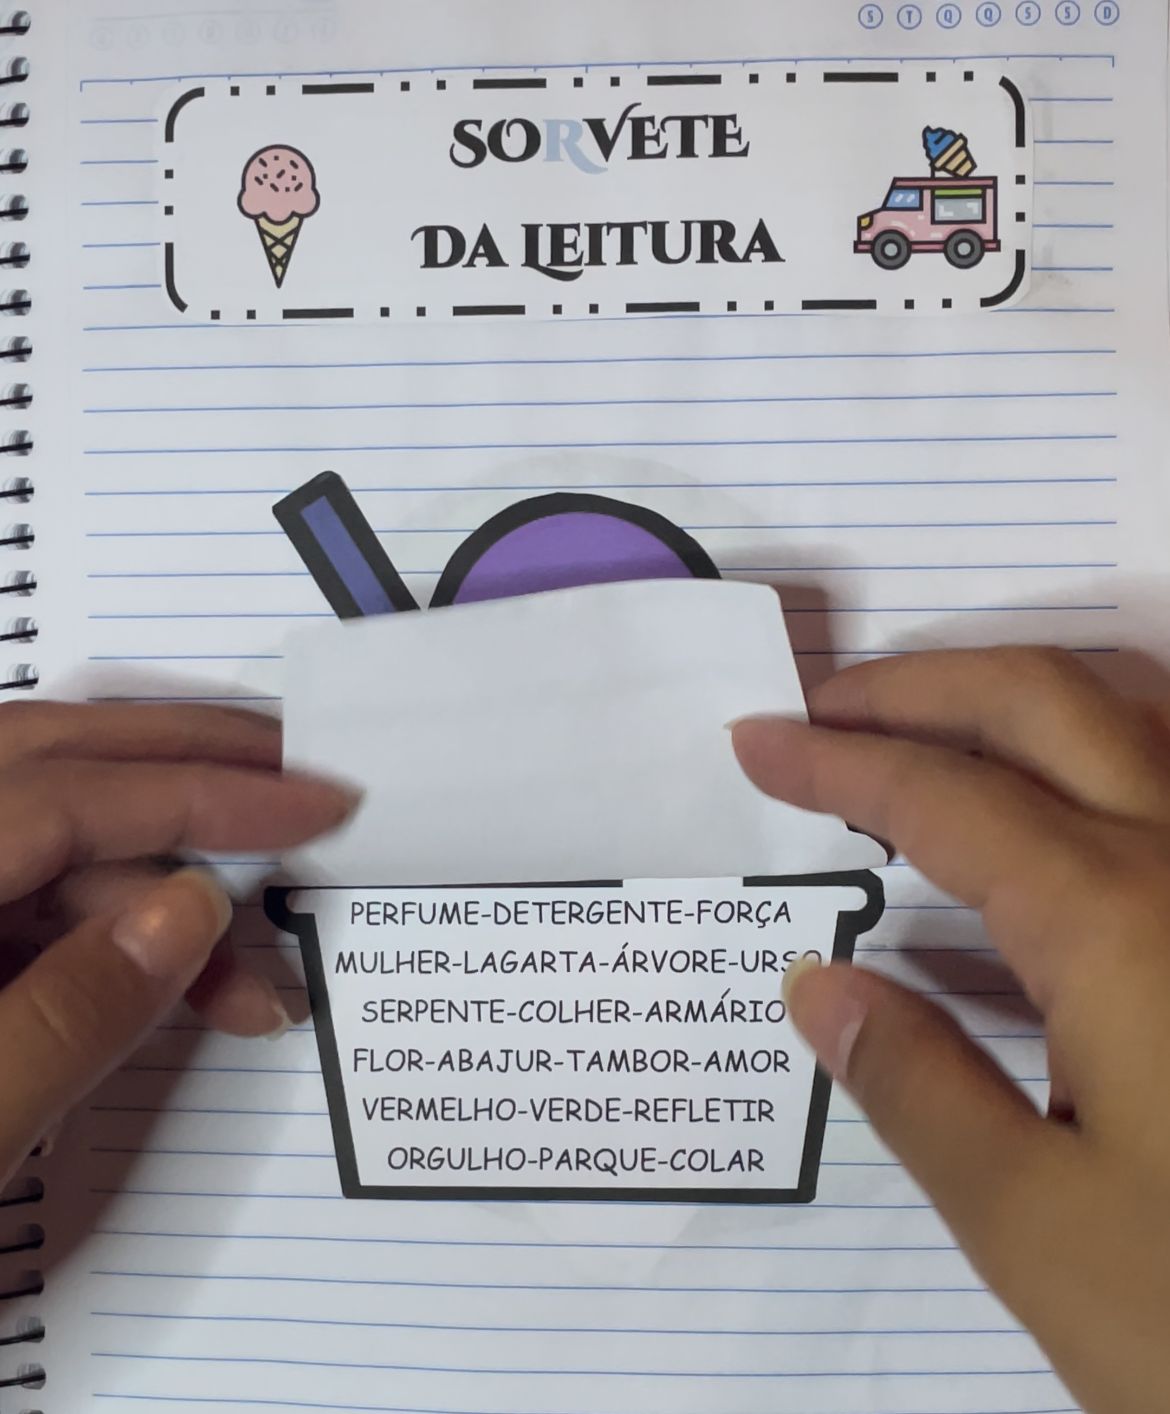 S T Q Q S S D
SORVETE
DA LEITURA
PERFUME-DETERGENTE-FORÇA
MULHER-LAGARTA-ÁRVORE-URSO
SERPENTE-COLHER-ARMÁRIO
FLOR-ABAJUR-TAMBOR-AMOR
VERMELHO-VERDE-REFLETIR
ORGULHO-PARQUE-COLAR